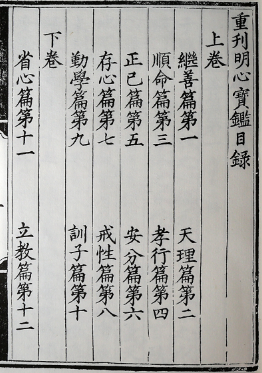 重刊明心寶鑑目錄
上卷
繼善篇第一　天理篇第二
順命篇第三　孝行篇第四
正已篇第五　安分篇第六
存心篇第七　戒性篇第八
勤學篇第九　訓子篇第十
下卷
省心篇第十一　立教篇第十二